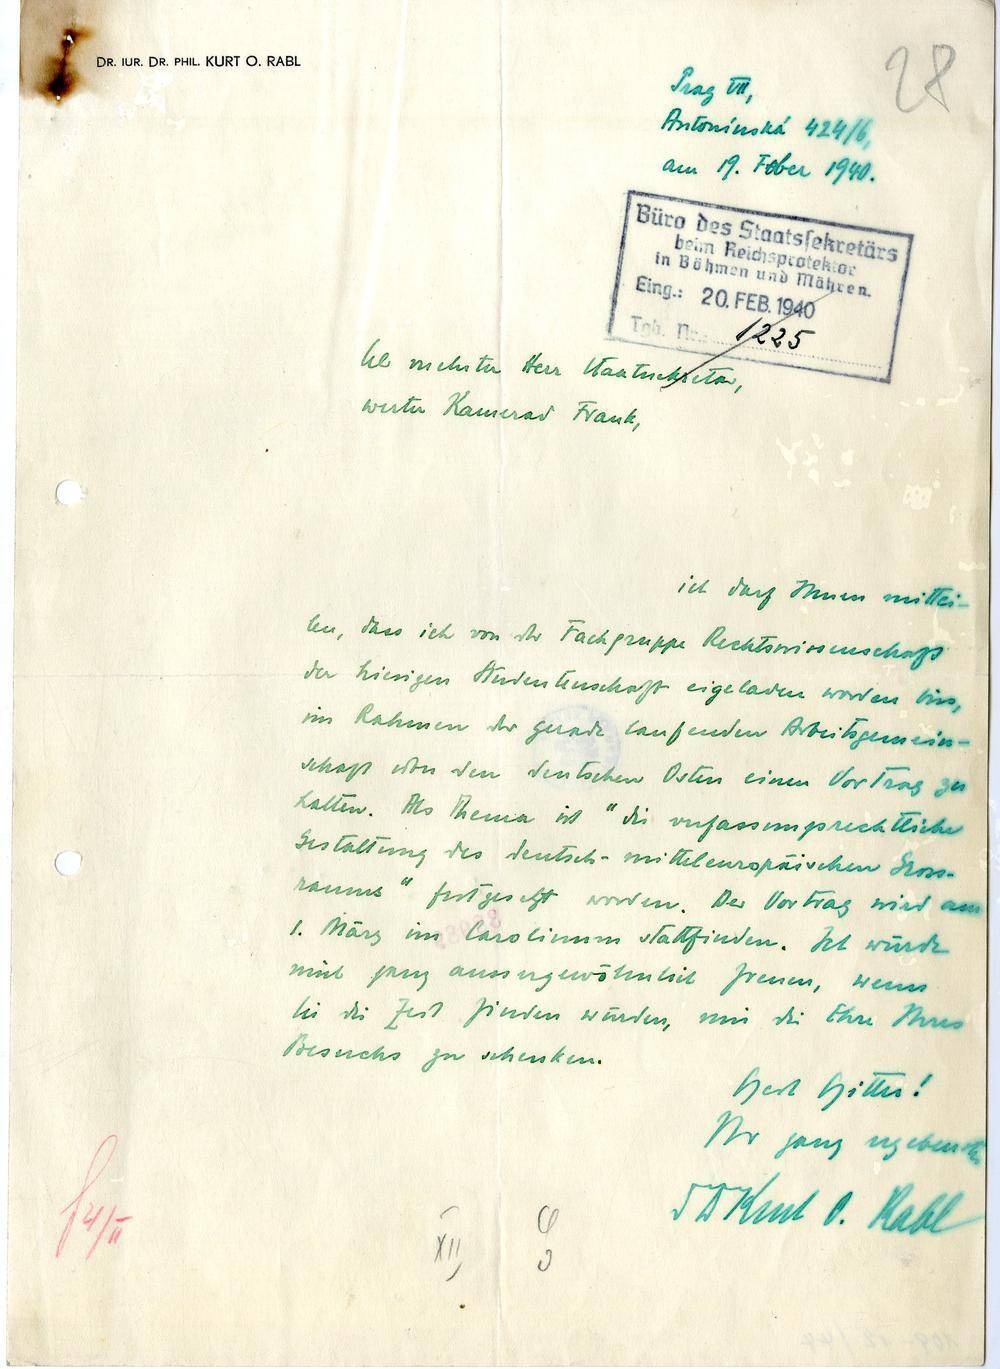 DR. IUR. DR. PHIL. KURT O. RABL
28
Prag VII,
Antonínská 424/6,
am 19. Feber 1940.
Büro des Staatssekretärs
beim Reichsprotektor
in Böhmen und Mähren.
Eing.: 20. FEB. 1940
Tgb. Nr. 1225
Herr Staatssekretär,
werter Kamerad Frank,
ich darf Ihnen mittei-
len, dass ich von der Fachgruppe Rechtswissenschaft
der hiesigen Studentenschaft eigeladen worden bin,
im Rahmen der gerade laufenden Arbeitsgemein-
schaft über den deutschen Osten einen Vortrag zu
halten. Als Thema ist "die verfassungsrechtliche
Gestaltung des deutsch-mitteleuropäischen Gross-
raums" festgesetzt worden. Der Vortrag wird am
1. März im Carolinum stattfinden. Ich würde
mich ganz aussergewöhnlich freuen, wenn
Sie die Zeit finden würden, mir die Ehre Ihres
Besuchs zu schenken.
Heil Hitler!
Ihr ganz ergebenster
Kurt O. Rabl
XII,